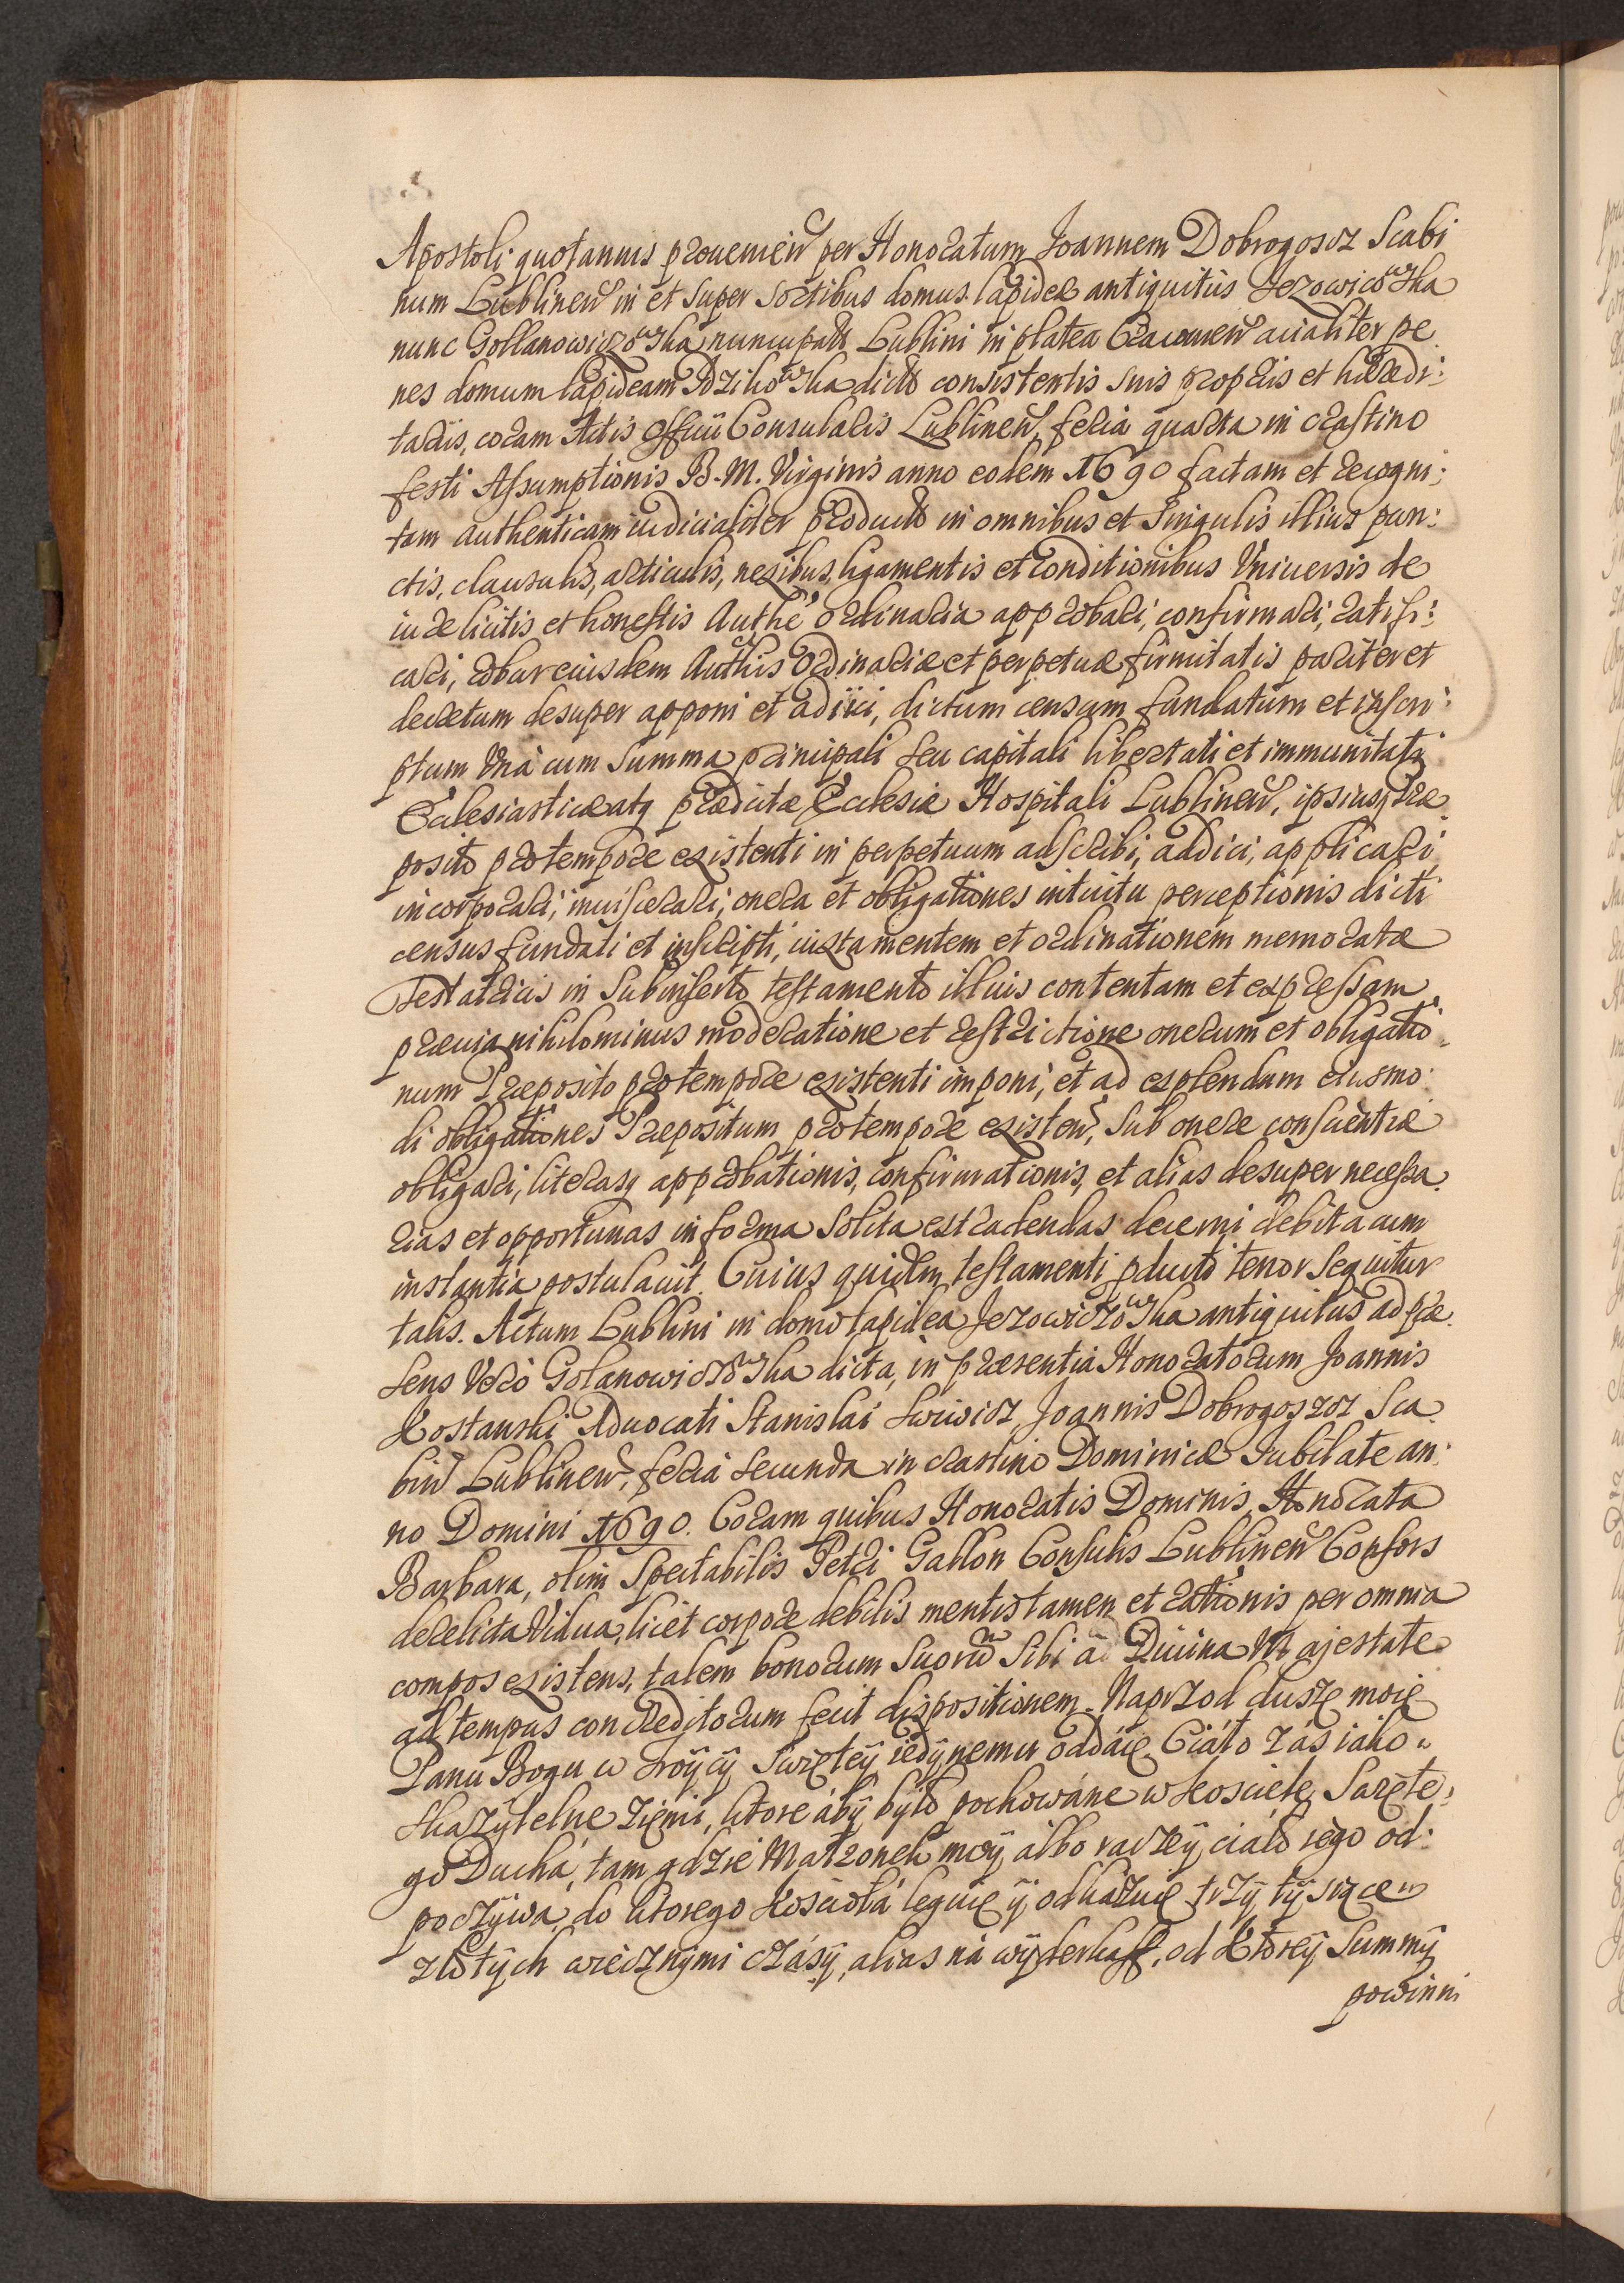 Apostoli quotannis prouenieñ per Honoratum Joannem Dobrogoscz Scabi
num Lublineñ in et super sortibus domus lapideæ antiquitus Jezowiczowska
nunc Gollanowiczowska nuncupatæ Lublini in platea Cracouieñ acialiter pe
nes domum lapideam dictã consistentis suis proprijs et hæredi:
tarijs, coram Actis Officij Consularis Lublineñ, feria quarta in crastino
festi Assumptionis B. M. Virginis anno eodem 1690 factam et recogni:
tam authenticam iudicialiter productã in omnibus et singulis illius pun:
ctis, clausulis, articulis, nexibus, ligamentis et conditionibus Vniuersis de
iure licitis et honestis Authê ordinaria approbari, confirmari, ratifi:
cari, robur eiusdem Auth̃is Ordinariæ et perpetuæ firmitatis pariter et
decretum desuper apponi et adijci, dictum censum fundatum et inscri:
ptum Vnà cum summa principali seu capitali libertati et immunitati
Ecclesiasticæ atq prædictæ Ecclesiæ Hospitali Lublineñ, ipsiusq Præ
posito protempore existenti in perpetuum adscribi, addici, applicari
incorporari, inuiscerari, onera et obligationes intuitu perceptionis dicti
census fundati et inscripti, iuxta mentem et ordinationem memoratæ
Testatricis in subinserto testamento illius contentam et expressam
præuia nihilominus moderatione et restrictione onerum et obligatio
num Præposito protempore existenti imponi, et ad explendum eiusmo:
di obligationes Præpositum protempore existeñ, sub onere conscientiæ
obligari, literasq approbationis, confirmationis, et alias desuper necessa
rias et opportunas in forma solita extradendas decerni debita cum
instantia postulauit. Cuius quidem testamenti pducti tenor sequitur
talis. Actum Lublini in domo lapidea Jezowiczowska antiquitus ad præ
sens Verò Golanowiczowska dicta, in præsentia Honoratorum Joannis
Kostanski Aduocati Stanislai Joannis Dobrogoszcz Sca
bin̄ Lublineñ, feria secunda in crastino Dominicæ Jubilate an:
no Domini 1690. Coram quibus Honoratis Dominis, Honorata
Barbara, olim Spectabilis Petri Gallon Consulis Lublineñ Consors
derelicta Vidua, licèt corpore debilis mentis tamen et rationis per omnia
compos existens, talem bonorum suorũ sibi à Diuina Majestate
ad tempus concreditorum fecit dispositionem. Naprzod duszę moię
Panu Bogu w Troÿcÿ Swiętеÿ iedÿnemu oddáię. Ciáło zás iáko
skazÿtelne ziemi, ktore ábÿ bÿło pochowáne w Kosciele Swięte:
go Duchá, tam gdzie Małzonek moÿ álbo raczeÿ ciało iego od:
poczÿwa, do ktorego Kosciołá leguię ÿ odkázuię trzÿ tÿsiące
złotÿch wiecznÿmi czásÿ, alias ná wÿderkaff, od Ktoreÿ Summÿ
powinni